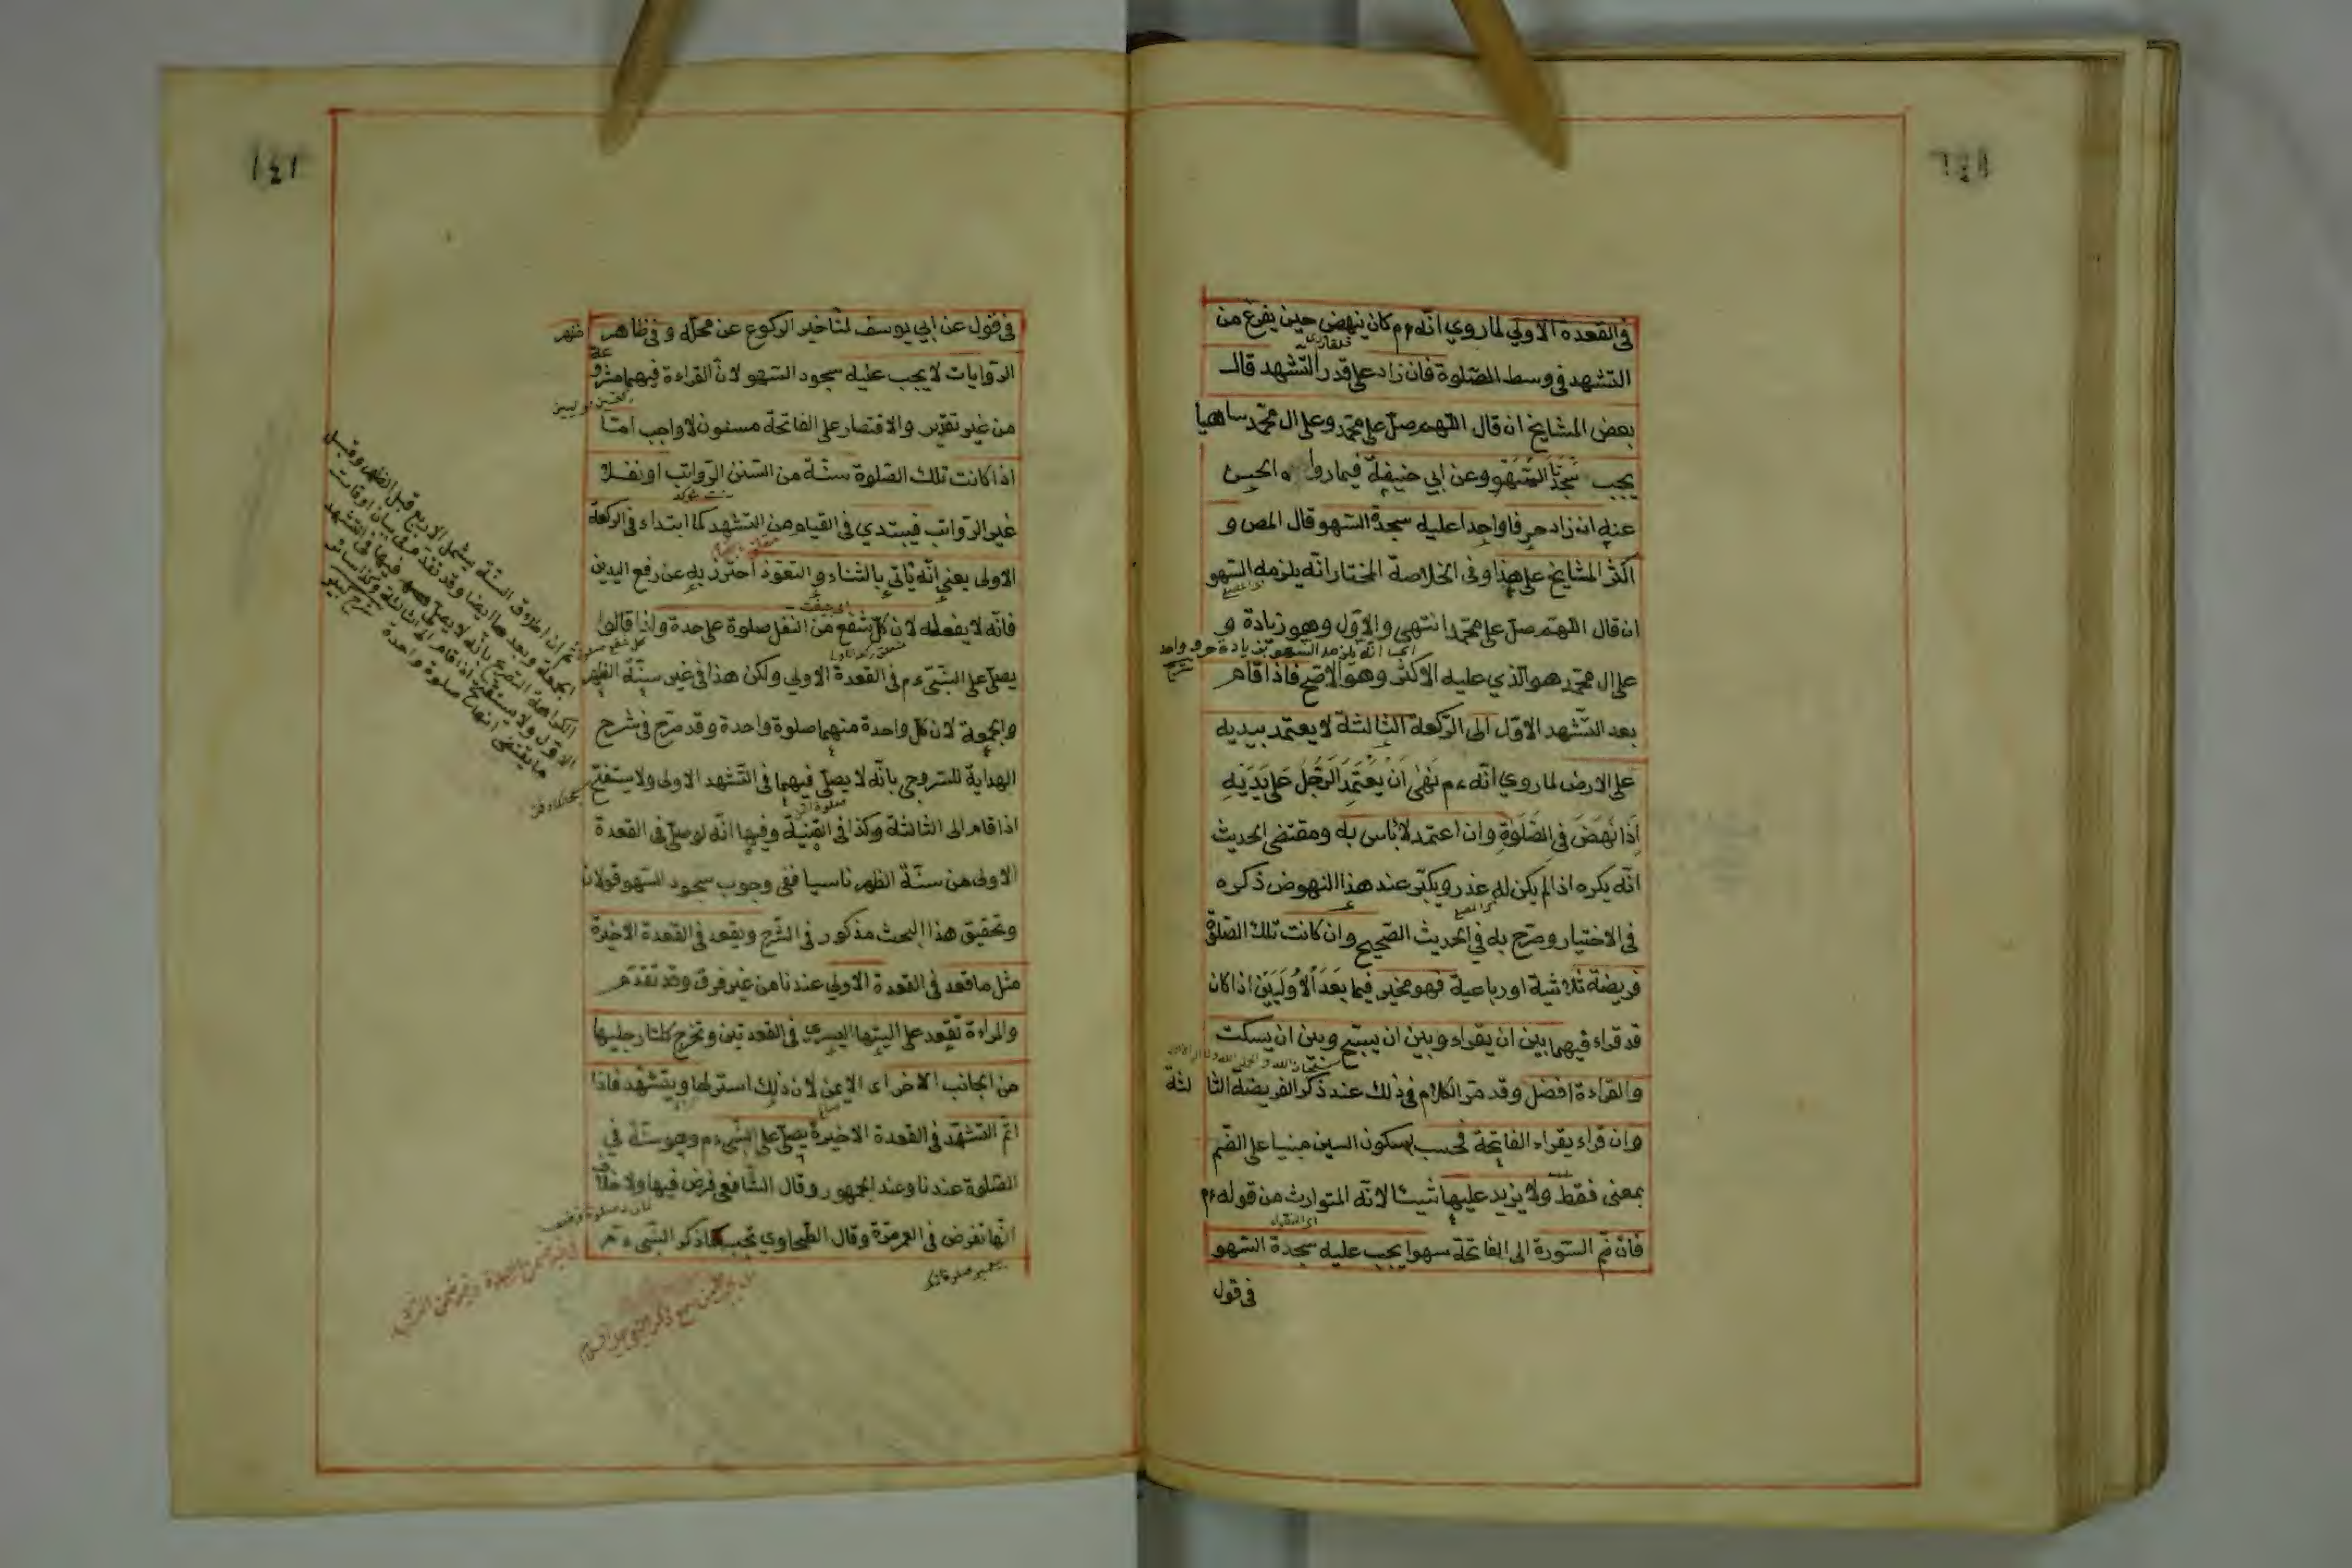 في القعدة الاولي لما روي انه ءم كان ينهض حين يفرغ من
التشهد في وسط الصلوة فان زاد على قدر التشهد قال
بعض المشايخ ان قال اللهم صل على محمد وعلى ال محمد ساهيا
يجب سجدتا السهو وعن ابي حنيفة فيما رواه الحسن
عنه ان زاد حرفا واحدا عليه سجدة السهو قال المص و
اكثر المشايخ على هذا وفي الخلاصة المختار انه يلزمه السهو
ان قال اللهم صل على محمد انتهى والاول وهو زيادة و
على ال محمد هو الذي عليه الاكثر وهو الاصح فاذا قام
بعد التشهد الاول الى الركعة الثالثة لا يعتمد بيديه
على الارض لما روي انه ءم نَهَىٰ اَنْ يَعْتَمِدَ الرَّجُلُ عَلَى يَدَيْهِ
اِذَا نَهَضَ فِي الصَّلٰوةِ وان اعتمد لا بأس به ومقتضى الحديث
انه يكره اذا لم يكن له عذر ويكبر عند هذا النهوض ذكره
في الاختيار وصرح به في الحديث الصحيح وان كانت تلك الصلوة
فريضة ثلاثية او رباعية فهو مخير فيما بعد الاوليين اذا كان
قد قراء فيهما بين ان يقراء وبين ان يسبح وبين ان يسكت
والقراءة افضل وقد مر الكلام في ذلك عند ذكر الفريضة الثا لثة
وان قراء يقراء الفاتحة فحسب بسكون السين مبنيا على الضم
بمعنى فقط ولا يزيد عليها شيئا لانه المتوارث من قوله ءم
فان ضم السورة الى الفاتحة سهوا يجب عليه سجدة السهو
في قول
١٤١
في قول عن ابي يوسف لتأخير الركوع عن محله وفي ظاهر
الروايات لا يجب عليه سجود السهو لان القراءة فيهما مشروعة
من غير تقدير والاقتصار على الفاتحة مسنون لا واجب اما
اذا كانت تلك الصلوة سنة من السنن الرواتب او نفلا
غير الرواتب فيبتدي في القيام من التشهد كما ابتداء في الركعة
الاولى يعني انه يأتي بالثناء والتعوذ احترز به عن رفع اليدين
فانه لا يفعله لان كل شفع من النفل صلوة على حدة ولذا قالوا
يصلى على النبي ءم في القعدة الاولي ولكن هذا في غير سنة الظهر
والجمعة لان كل واحدة منهما صلوة واحدة وقد صرح في شرح
الهداية للسروجي بانه لا يصلى فيهما في التشهد الاولى ولا يستفتح
اذا قام الى الثالثة وكذا في القنية وفيها انه لو صلى في القعدة
الاولى من سنة الظهر ناسيا ففي وجوب سجود السهو قولان
وتحقيق هذا البحث مذكور في الشرح ويقعد في القعدة الاخيرة
مثل ما قعد في القعدة الاولي عندنا من غير فرق وقد تقدم
والمراءة تقعد على اليتها اليسرى في القعدتين وتخرج كلتا رجليها
من الجانب الاخر اى الايمن لان ذلك استر لها ويتشهد فاذا
اتم التشهد في القعدة الاخيرة يصلى على النبي ءم وهو سنة في
الصلوة عندنا وعند الجمهور وقال الشافعي فرض فيها ولا خلاف
انها تفرض في العمر مرة وقال الطحاوي تجب كلما ذكر النبي ءم
ثم ان اطلاق السنة يشمل الاربع قبل الظهر وقبل
الجمعة وبعدها ايضا وقد تقدم في بيان اوقات
الاول ولا يستفتح اذا قام الى الثالثة وكذا
ما يقتضى انها صلوة واحدة شرح كبير